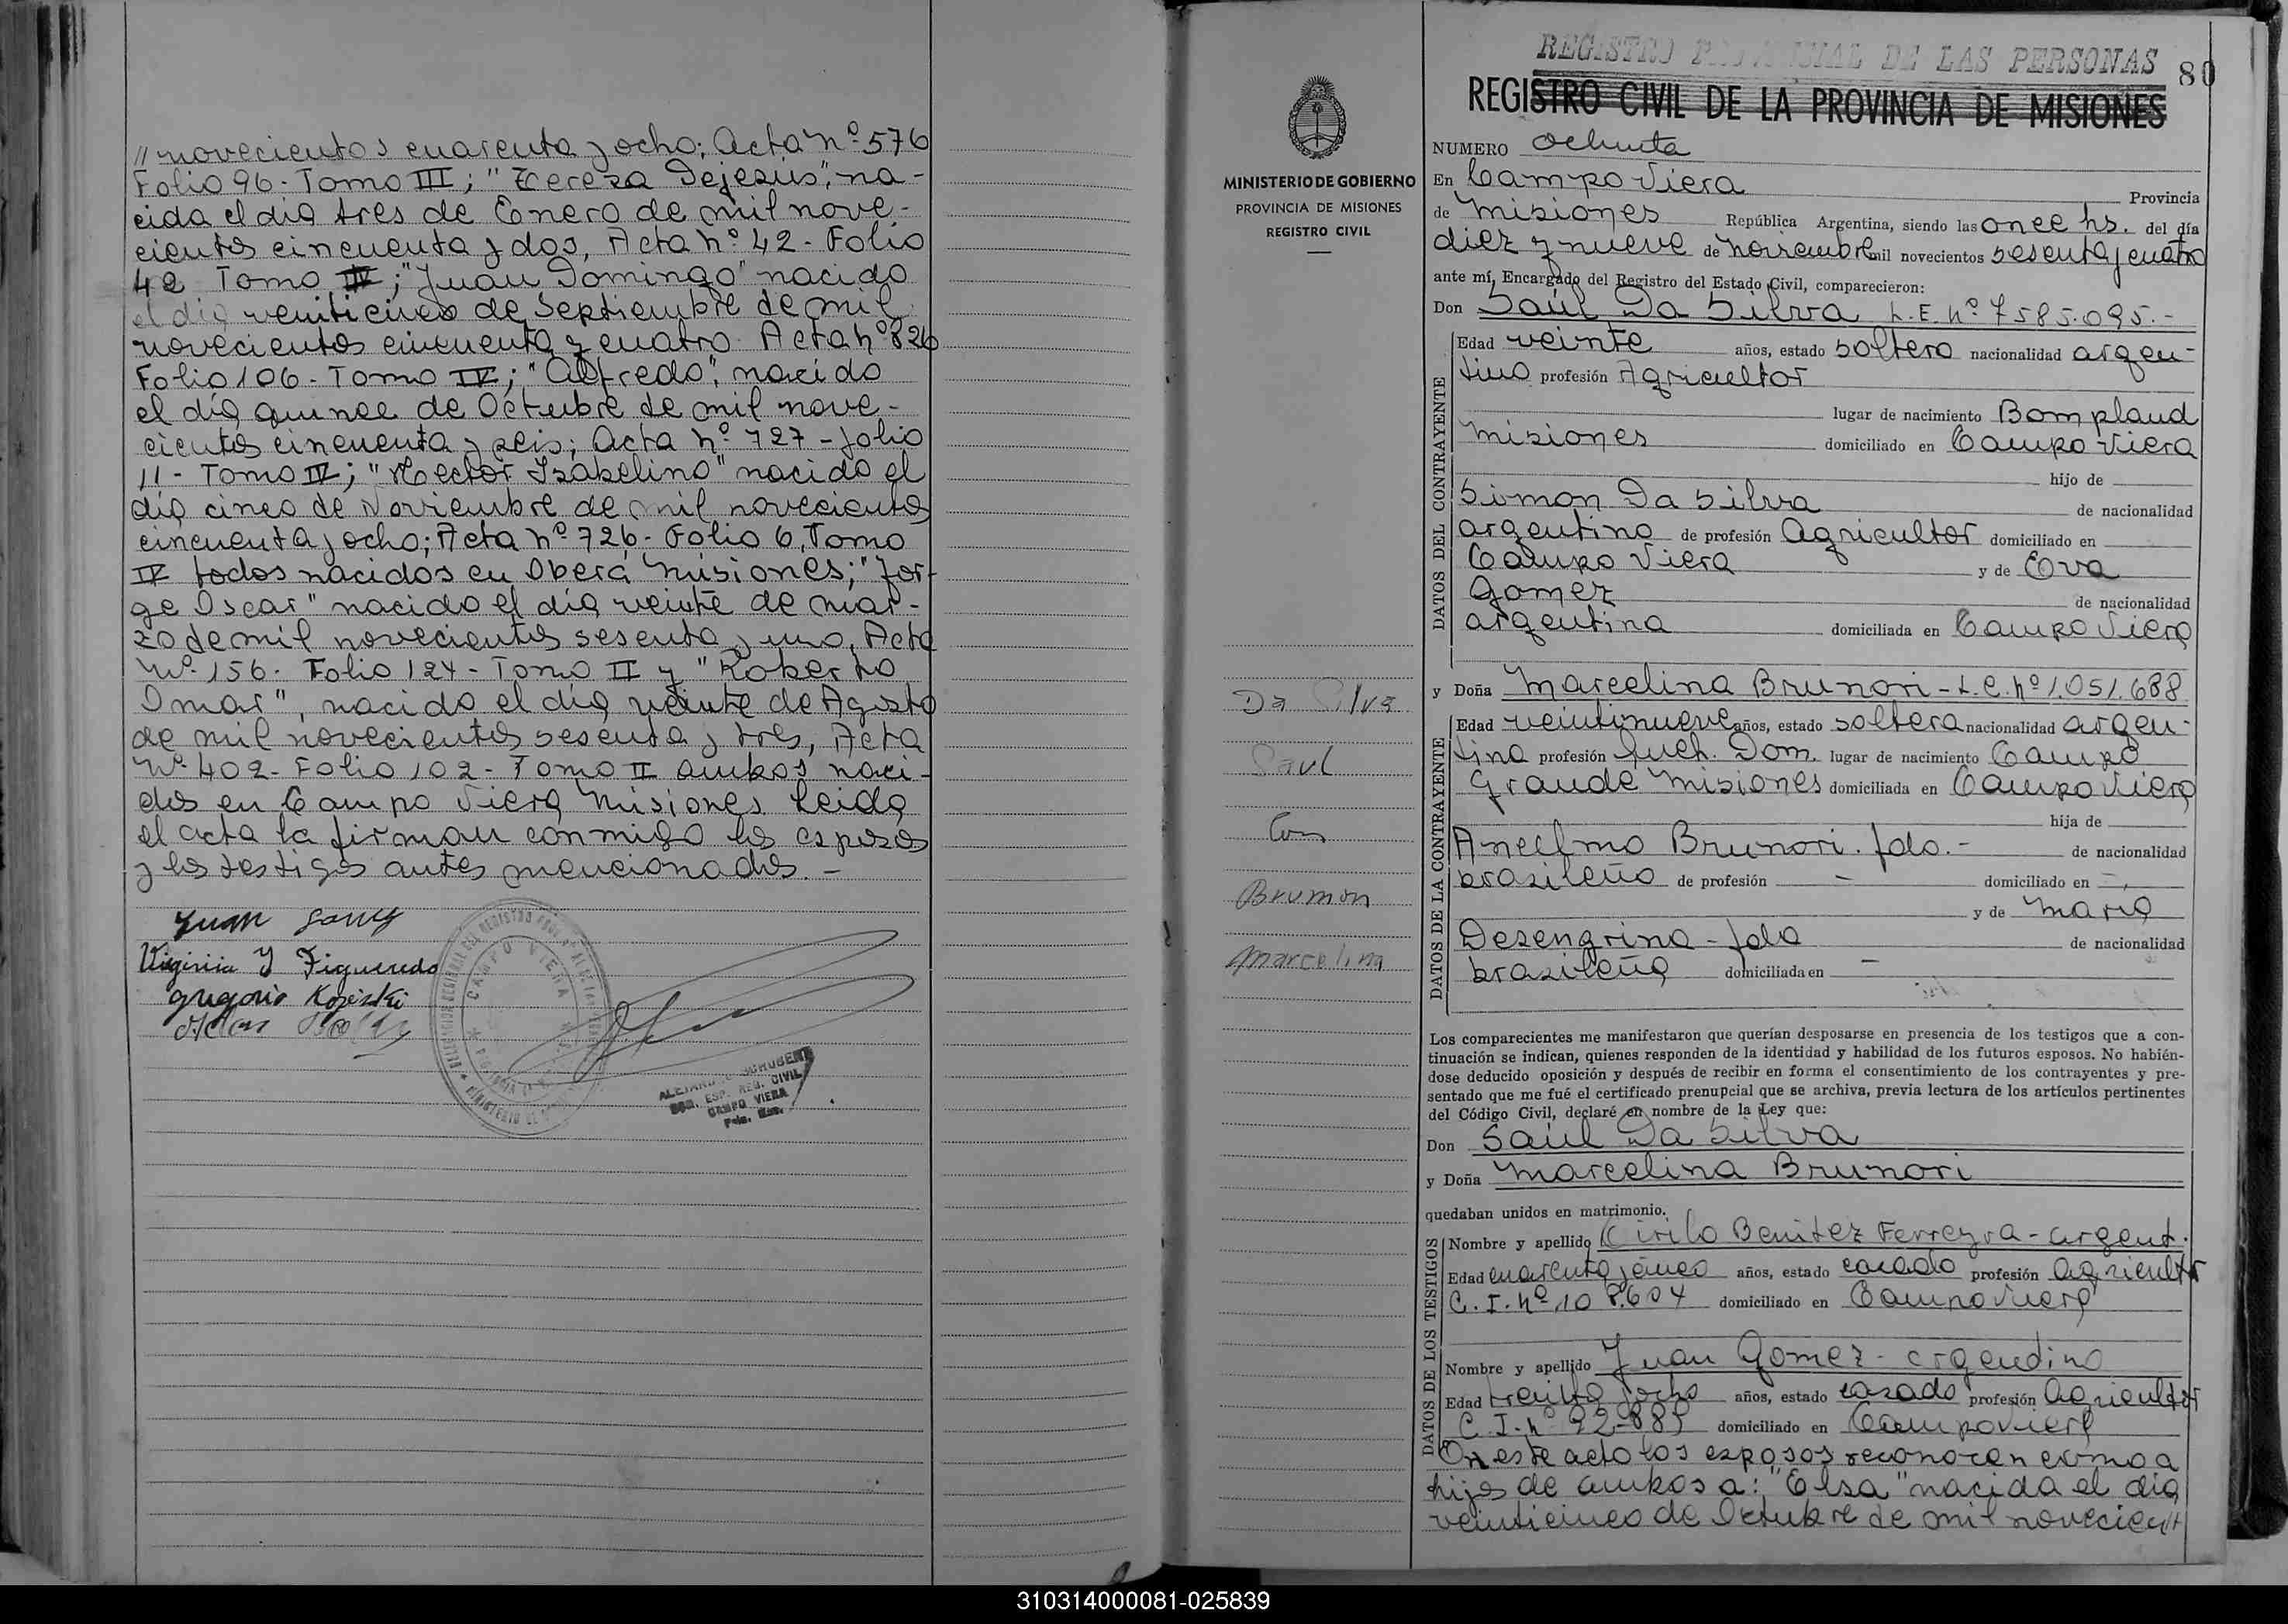 // novecientos cuarenta y ocho; Acta nº 576
Folio 96 - Tomo III; "Tereza Dejesus", na-
cida el dia tres de Enero de mil nove-
cientos cincuenta y dos, Acta nº 42 - Folio
42 Tomo IV; "Juan Domingo" nacido
el dia veinticinco de Septiembre de mil
novecientos cincuenta y cuatro. Acta nº 826
Folio 106 - Tomo IV; "Alfredo", nacido
el día quince de Octubre de mil nove-
cientos cincuenta y seis; Acta nº 727 - folio
11 - Tomo IV; "Hector Isabelino" nacido el
día cinco de Noviembre de mil novecientos
cincuenta y ocho; Acta nº 726 - Folio 6, Tomo
IV todos nacidos en Oberá Misiones; "Jor-
ge Oscar" nacido el día veinte de mar-
zo de mil novecientos sesenta y uno, Acta
Nº 156 - Folio 124 - Tomo II y "Roberto
Omar", nacido el día veinte de Agosto
de mil novecientos sesenta y tres, Acta
Nº 402 - Folio 102 - Tomo II ambos naci-
dos en Campo Viera Misiones. Leida
el acta la firman conmigo los esposos
y los testigos antes mencionados. -
Juan
Virginia Y Figueredo
gregorio
CAMPO VIERA
SCHUBERT
ESP. REG. CIVIL
CAMPO VIERA
MINISTERIO DE GOBIERNO
PROVINCIA DE MISIONES
REGISTRO CIVIL
Da Silva
Saul
Con
Brumori
Marcelina
REGISTRO PROVINCIAL DE LAS PERSONAS 80
REGISTRO CIVIL DE LA PROVINCIA DE MISIONES
NUMERO Ochenta
En Campo Viera Provincia
de Misiones República Argentina, siendo las once hs. del día
diez y nueve de Noviembre mil novecientos sesenta y cuatro
ante mí, Encargado del Registro del Estado Civil, comparecieron:
Don Saúl Da Silva L.E. nº 7585.095.-
DATOS DEL CONTRAYENTE
Edad veinte años, estado soltero nacionalidad argen-
tino profesión Agricultor
lugar de nacimiento Bompland
Misiones domiciliado en Campo Viera
hijo de
Simon Da Silva de nacionalidad
argentino de profesión Agricultor domiciliado en
Campo Viera y de Eva
Gomez de nacionalidad
argentina domiciliada en Campo Viera
y Doña Marcelina Brunori - L.C. nº 1.051.688
DATOS DE LA CONTRAYENTE
Edad veintinueve años, estado soltera nacionalidad argen-
tina profesión Queh. Dom. lugar de nacimiento Campo
Grande Misiones domiciliada en Campo Viera
hija de
Anselmo Brunori. fdo. - de nacionalidad
brasileño de profesión - domiciliado en -
y de Maria
Desengrina - fda de nacionalidad
brasileña domiciliada en -
Los comparecientes me manifestaron que querían desposarse en presencia de los testigos que a con-
tinuación se indican, quienes responden de la identidad y habilidad de los futuros esposos. No habién-
dose deducido oposición y después de recibir en forma el consentimiento de los contrayentes y pre-
sentado que me fué el certificado prenupcial que se archiva, previa lectura de los artículos pertinentes
del Código Civil, declaré en nombre de la Ley que:
Don Saúl Da Silva
y Doña Marcelina Brunori
quedaban unidos en matrimonio.
DATOS DE LOS TESTIGOS
Nombre y apellido Cirilo Benitez Ferreyra - argent.
Edad cuarenta y cinco años, estado casado profesión Agricultor
C.I. nº 108.604 domiciliado en Campo Viera
Nombre y apellido Juan Gomez - argentino
Edad treinta y ocho años, estado casado profesión Agricultor
C.I. nº 92-885 domiciliado en Campo Viera
En este acto los esposos reconocen como a
hijos de ambos a: "Elsa" nacida el día
veinticinco de Octubre de mil novecient//
310314000081-025839